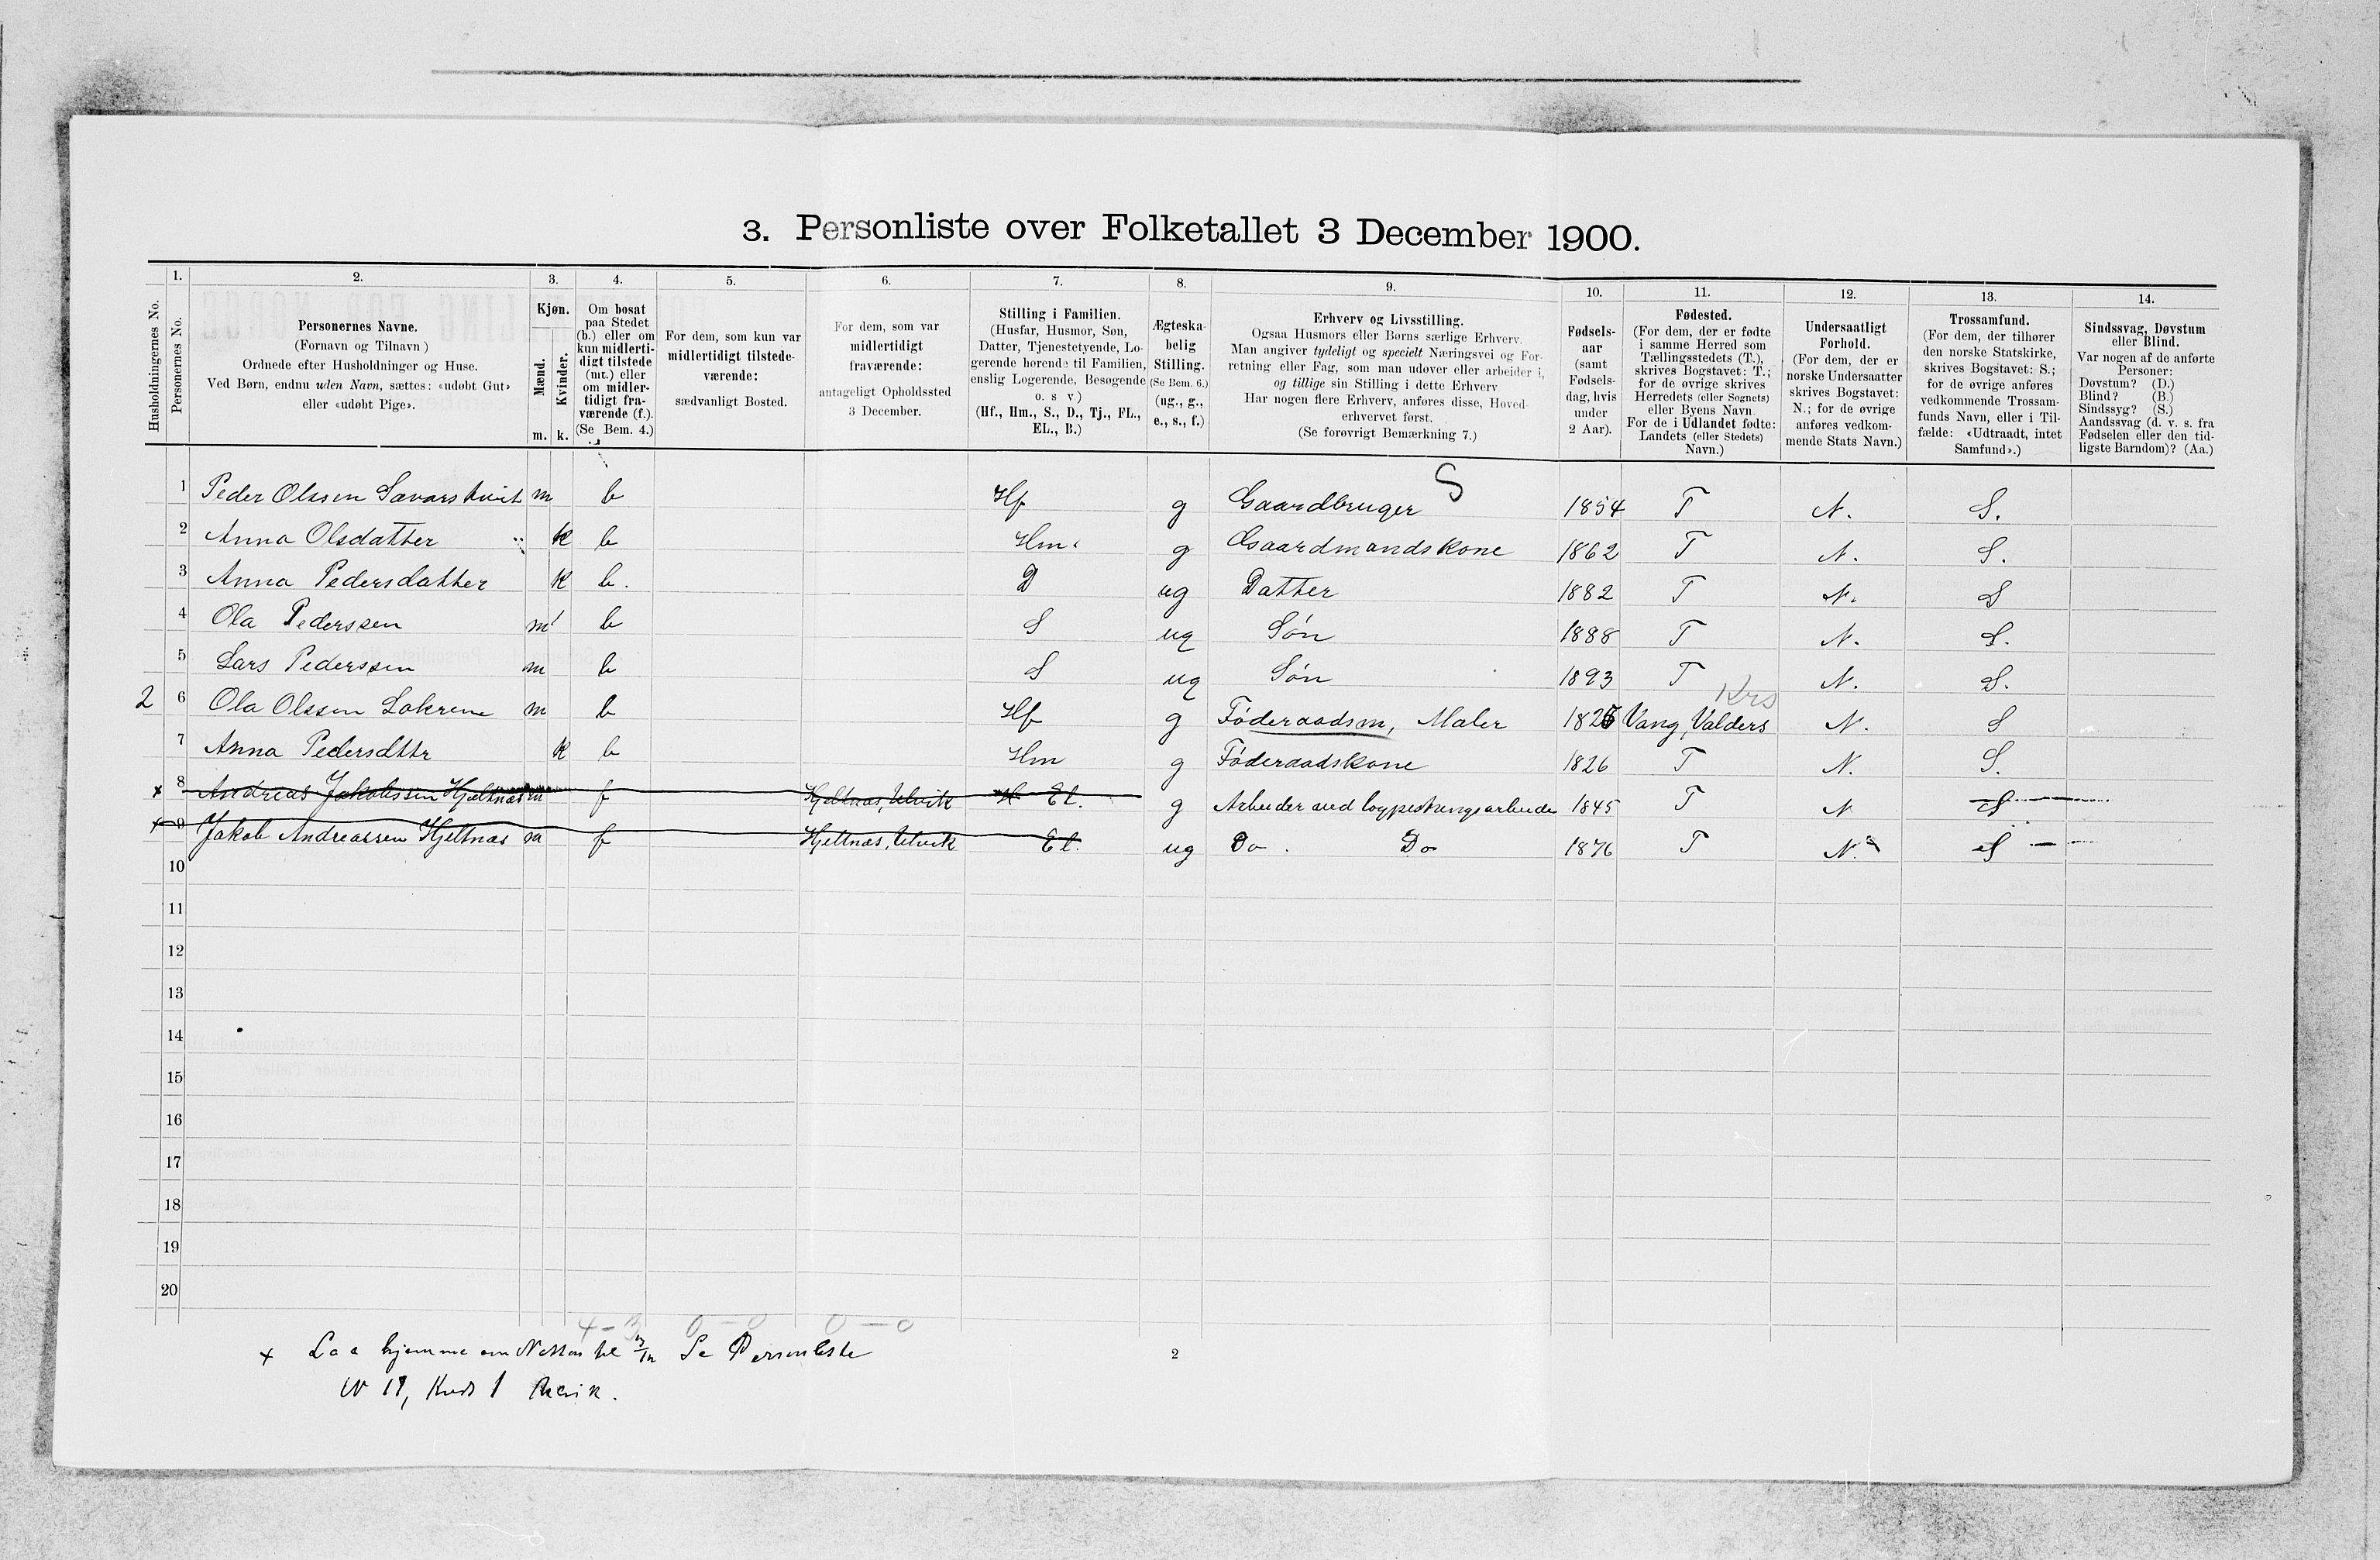 3. Personliste over Folketallet 3 December 1900.
Husholdningernes No.
1. Personernes No.
2. Personernes Navne.
(Fornavn og Tilnavn)
Ordnede efter Husholdninger og Huse.
Ved Børn, endnu uden Navn, sættes: «udøbt Gut»
eller «udøbt Pige».
3. Kjøn.
Mænd. m.
Kvinder. k.
4. Om bosat
paa Stedet
(b.) eller om
kun midlerti-
digt tilstede
(mt.) eller
om midler-
tidigt fra-
værende (f.).
(Se Bem. 4.)
5. For dem, som kun var
midlertidigt tilstede-
værende:
sædvanligt Bosted.
6. For dem, som var
midlertidigt
fraværende:
antageligt Opholdssted
3 December.
7. Stilling i Familien.
(Husfar, Husmor, Søn,
Datter, Tjenestetyende, Lo-
gerende hørende til Familien,
enslig Logerende, Besøgende
o. s v)
(Hf., Hm., S., D., Tj., FL.,
EL., B.)
8. Ægteska-
belig
Stilling.
(Se Bem. 6.)
(ug., g.,
e., s., f.)
9. Erhverv og Livsstilling.
Ogsaa Husmors eller Børns særlige Erhverv.
Man angiver tydeligt og specielt Næringsvei og For-
retning eller Fag, som man udøver eller arbeider i,
og tillige sin Stilling i dette Erhverv
Har nogen flere Erhverv, anføres disse, Hoved-
erhvervet først.
(Se forøvrigt Bemærkning 7.)
10. Fødsels-
aar
(samt
Fødsels-
dag, hvis
under
2 Aar).
11. Fødested.
(For dem, der er fødte
i samme Herred som
Tællingsstedets (T.),
skrives Bogstavet: T.;
for de øvrige skrives
Herredets (eller Sognets)
eller Byens Navn
For de i Udlandet fødte:
Landets (eller Stedets)
Navn.)
12. Undersaatligt
Forhold.
(For dem, der er
norske Undersaatter
skrives Bogstavet:
N.; for de øvrige
anføres vedkom-
mende Stats Navn.)
13. Trossamfund.
(For dem, der tilhører
den norske Statskirke,
skrives Bogstavet: S.;
for de øvrige anføres
vedkommende Trossam-
funds Navn, eller i Til-
fælde: «Udtraadt, intet
Samfund».)
14. Sindssvag, Døvstum
eller Blind.
Var nogen af de anførte
Personer:
Døvstum? (D.)
Blind? (B.)
Sindssyg? (S.)
Aandssvag (d. v. s. fra
Fødselen eller den tid-
ligste Barndom)? (Aa.)
S
1 Peder Olssen m b Hf g Gaardbruger 1854 T N. S.
2 Anna Olsdatter k b Hm. g Gaardmandskone 1862 T N. S.
3 Anna Pedersdatter k b. D ug Datter 1882 T N. S
4 Ola Pederssen m b S ug Søn 1888 T N. S.
5 Lars Pederssen m b S ug Søn 1893 T N. S.
Krs
2 6 Ola Olssen m b Hf g Føderaadsm, Maler 1825 Vang, Valders N. S
7 Anna Pedersdttr k b Hm g Føderaadskone 1826 T N. S.
x 8 Andreas Jakobssen Hjeltnæs m f Hjeltnæs, Ulvik El. g Arbeider ved 1845 T N S
x 9 Jakob Andreassen Hjeltnæs m f Hjeltnæs, Ulvik El. ug Do. Do 1876 T N. S
10
11
12
13
14
15
16
17
18
19
20
4-3 0-0 0-0
x Laa hjemme om Natten til 3/12 Se Personliste
N 19, Kreds 1
2